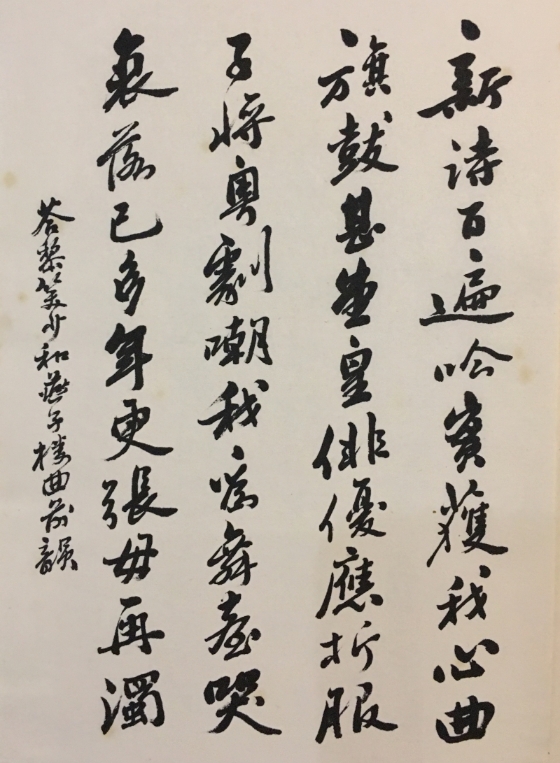 新詩百遍吟實獲我心曲
旗鼓甚堂皇俳優應折服
子將粵劇嘲我為舞臺哭
衰落已多年更張毋再濁
答黎少和燕子樓曲前韻